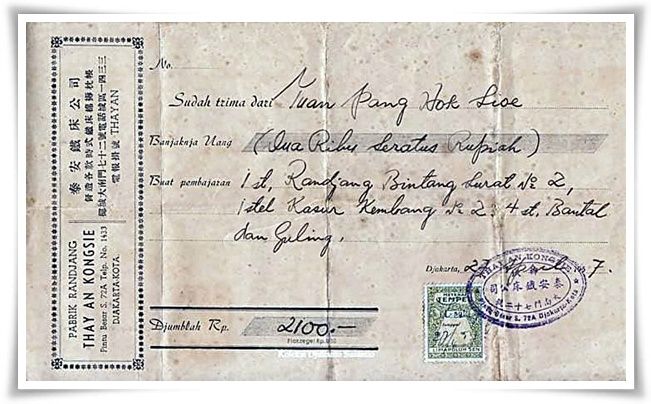 泰安鐵床公司
督造各款時式鐵床檯褥枕帳
椰城大南門七十二號電話城區一四三三
電報掛號 THAYAN
PABRIK RANDJANG
THAY AN KONGSIE
Pintu Besar S. 72A Telp. No. 1433
DJAKARTA-KOTA.
No.
Sudah trima dari Tuan Pang Hok Sioe
Banjaknja Uang (Dua Ribu Seratus Rupiah)
Buat pembajaran 1 st. Randjang Bintang Surat No 2,
1 stel Kasur Kembang No 2: 4 st. Bantal
dan Guling.
Djakarta, 27
7.
THAY AN KONGSIE
泰安鐵床公司
大南門七十二號
Besar S. 72A Djakarta-Kota
Djumblah Rp. 2100.—
METERAI
TEMPEL
LIMAPULUH SEN